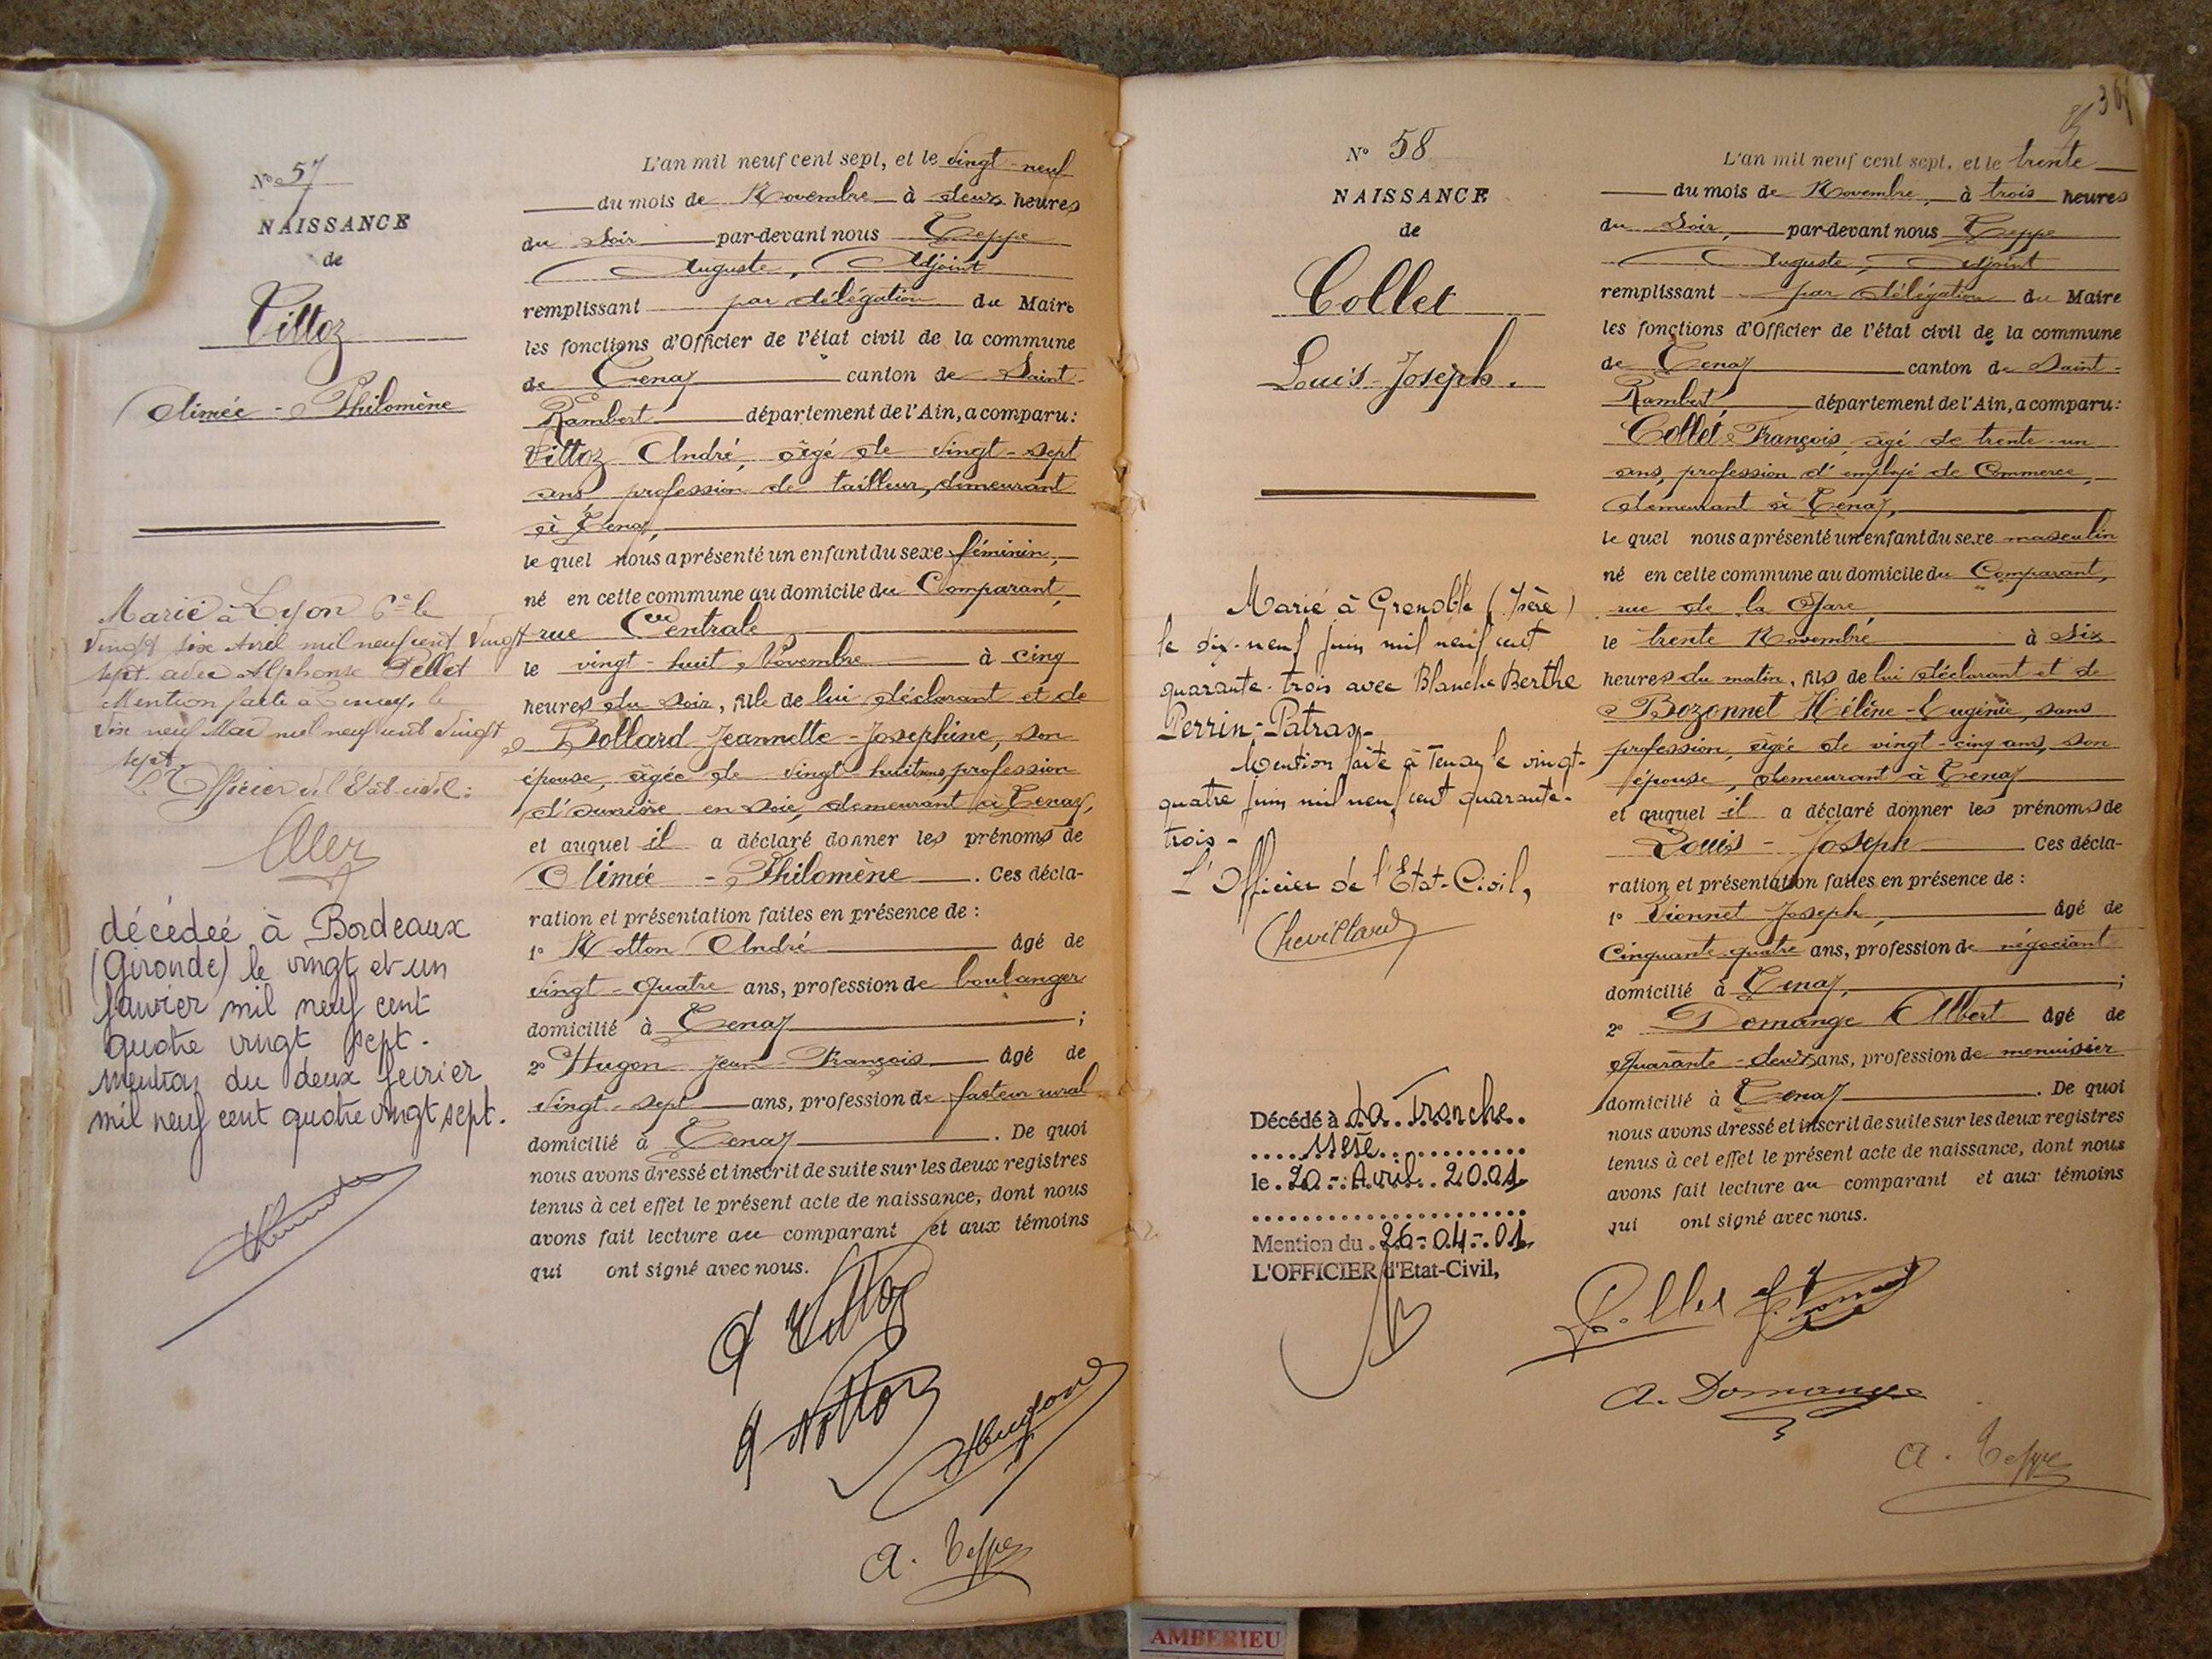 N° 57
NAISSANCE
de
Vittoz
Aimée - Philomène
Marié à Lyon 6e le
vingt six Avril mil neuf cent vingt
sept avec Alphonse Pellet
Mention faite à Tenay, le
dix neuf Mai mil neuf cent vingt
sept.
L'Officier de l'État-civil :
décédeé à Bordeaux
(Gironde) le vingt et un
Janvier mil neuf cent
quatre vingt sept.
Mention du deux février
mil neuf cent quatre vingt sept.
L'an mil neuf cent sept, et le vingt-neuf
du mois de Novembre à deux heures
du Soir par-devant nous Teppe
Auguste, Adjoint
remplissant par délégation du Maire
les fonctions d'Officier de l'état civil de la commune
de Tenay canton de Saint-
Rambert département de l'Ain, a comparu :
Vittoz André, âgé de vingt-sept
ans profession de tailleur, demeurant
à Tenay,
le quel nous a présenté un enfant du sexe féminin,
né en cette commune au domicile du Comparant,
rue Centrale
le vingt-huit Novembre à cinq
heures du soir, fille de lui déclarant et de
Bollard Jeannette-Josephine, son
épouse, âgée de vingt huit ans, profession
d'ouvrière en soie, demeurant à Tenay,
et auquel il a déclaré donner les prénoms de
Aimée - Philomène. Ces décla-
ration et présentation faites en présence de :
1° Notton André âgé de
vingt-quatre ans, profession de boulanger
domicilié à Tenay ;
2° Hugon Jean François âgé de
vingt-sept ans, profession de facteur rural
domicilié à Tenay. De quoi
nous avons dressé et inscrit de suite sur les deux registres
tenus à cet effet le présent acte de naissance, dont nous
avons fait lecture au comparant et aux témoins
qui ont signé avec nous.
A Vittoz
A Notton
Hugon
A. Teppe
N° 58
NAISSANCE
de
Collet
Louis-Joseph.
Marié à Grenoble (Isère)
le dix-neuf Juin mil neuf cent
quarante-trois avec Blanche Berthe
Perrin-Patras-
Mention faite à Tenay le vingt-
quatre Juin mil neuf cent quarante-
trois-
L'Officier de l'État-Civil,
Chevillard
Décédé à La Tronche.
Isère
le 20 - Avril 2001
Mention du 26-04-01
L'OFFICIER d'Etat-Civil,
L'an mil neuf cent sept, et le trente
du mois de Novembre, à trois heures
du Soir, par-devant nous Teppe
Auguste, Adjoint
remplissant par délégation du Maire
les fonctions d'Officier de l'état civil de la commune
de Tenay canton de Saint-
Rambert département de l'Ain, a comparu :
Collet François, âgé de trente-un
ans, profession d'employé de Commerce,
demeurant à Tenay,
le quel nous a présenté un enfant du sexe masculin
né en cette commune au domicile du Comparant,
rue de la Gare
le trente Novembre à Six
heures du matin, fils de lui déclarant et de
Bozonnet Hélène-Eugénie, sans
profession, âgée de vingt-cinq ans, son
épouse, demeurant à Tenay
et auquel il a déclaré donner les prénoms de
Louis - Joseph Ces décla-
ration et présentation faites en présence de :
1° Vionnet Joseph, âgé de
Cinquante quatre ans, profession de négociant
domicilié à Tenay, ;
2° Domange Albert âgé de
Quarante-deux ans, profession de menuisier
domicilié à Tenay. De quoi
nous avons dressé et inscrit de suite sur les deux registres
tenus à cet effet le présent acte de naissance, dont nous
avons fait lecture au comparant et aux témoins
qui ont signé avec nous.
A. Domange
A. Teppe
AMBERIEU